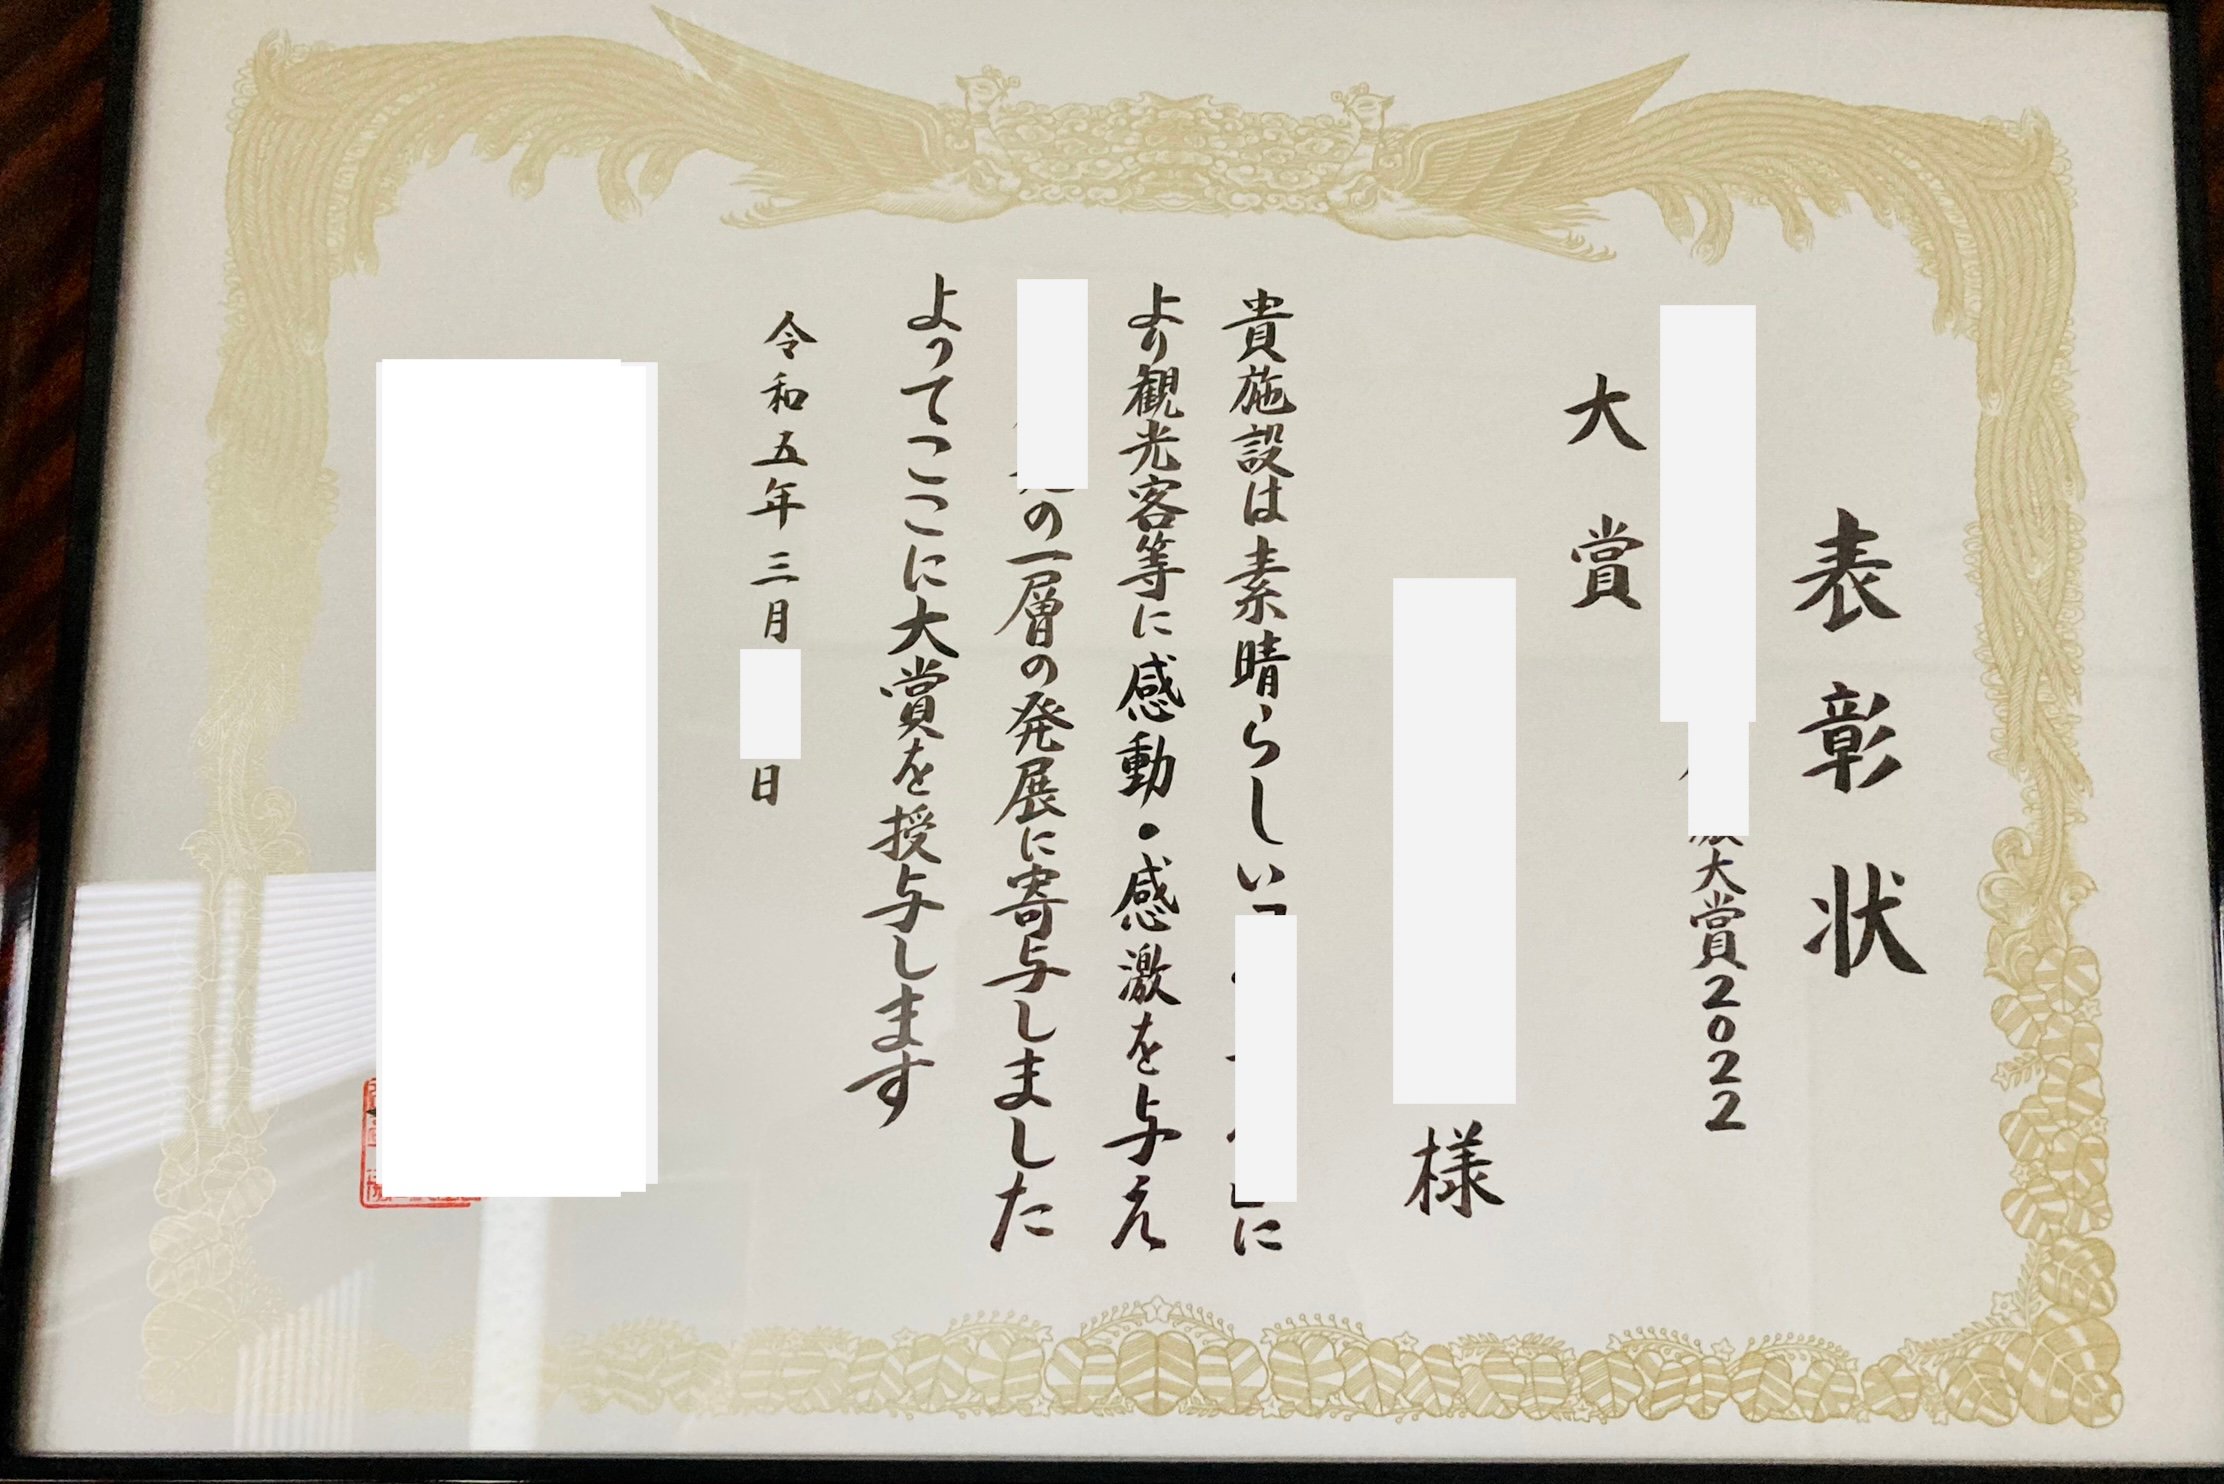 表彰状
大賞2022
大賞
様
貴施設は素晴らしい
に
より観光客等に感動・感激を与え
の一層の発展に寄与しました
よってここに大賞を授与します
令和五年三月
日